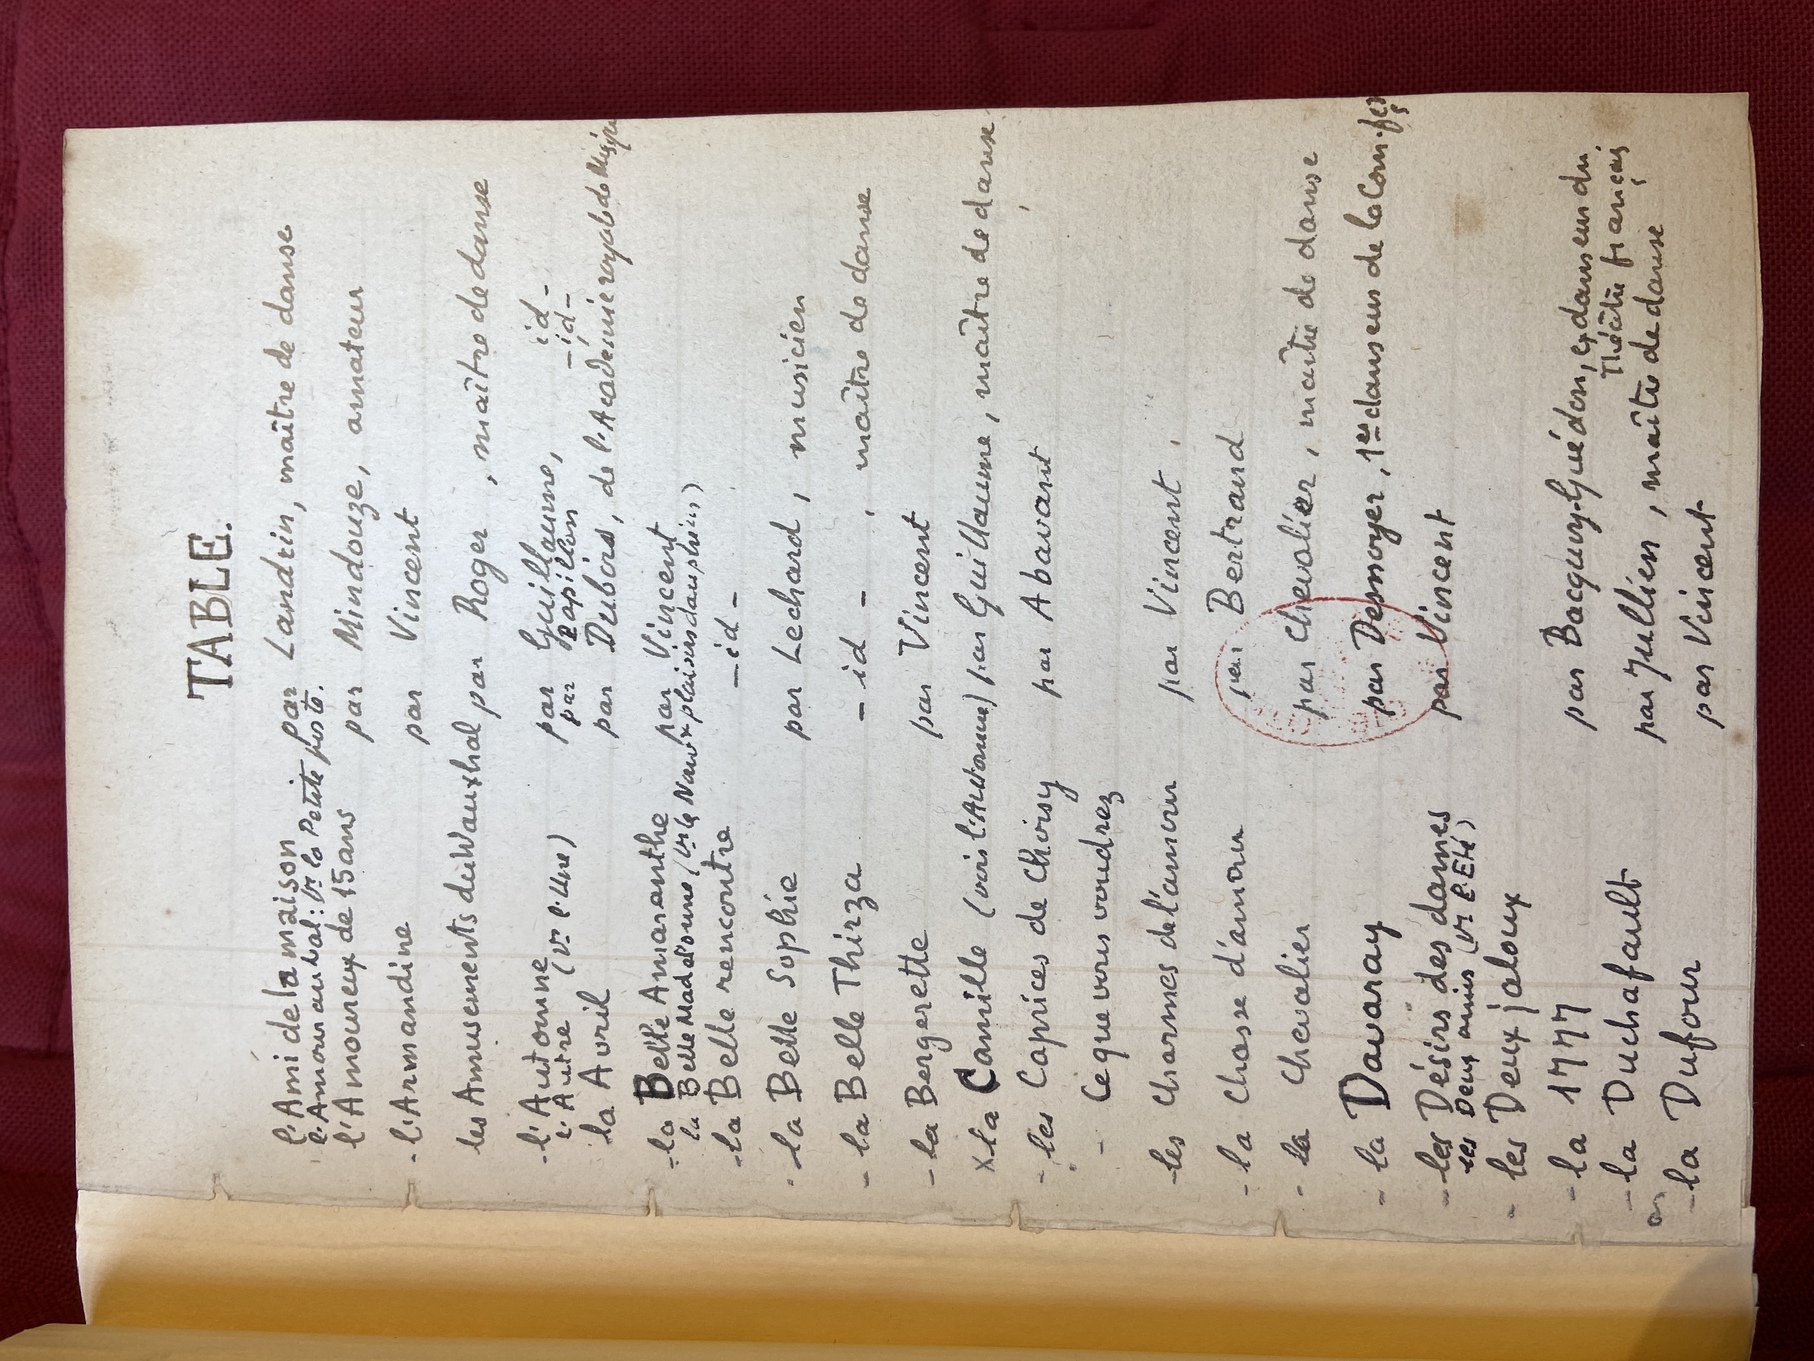 TABLE.
l'Ami de la maison par Landrin, maître de danse
l'Amour au bal: Vr la Petite poste.
l'Amoureux de 15 ans par Mindouze, amateur
- l'Armandine par Vincent
les Amusements du Wauxhal par Roger, maître de danse
- l'Automne par Guillaume, id -
l'Autre (Vr l'Une) par Papillon - id -
la Avril par Dubois, de l'Academie royale de
- la Belle Amaranthe par Vincent
la Belle Madelonne (Vr les Nouvx plaisirs dauphins)
- la Belle rencontre - id -
- la Belle Sophie par Lechard, musicien
- la Belle Thirza - id - , maître de danse
- la Bergerette par Vincent
x la Camille (voir l'Automne) par Guillaume, maître de danse
- les Caprices de Choisy par Abavant
- Ce que vous voudrez
- les Charmes de l'amour par Vincent.
- la Chasse d'amour par Bertrand
- la Chevalier par Chevalier, maître de danse
- la Davaray par Desnoyer, 1er danseur de la Com. fse
- les Désirs des dames par Vincent
les Deux amis (Vr l'Eté)
- les Deux jaloux
- la 1777 par Bacquoy-Guédon, ex danseur du
Théâtre français
- la Duchafault par Jullien, maître de danse
- la Dufour par Vincent